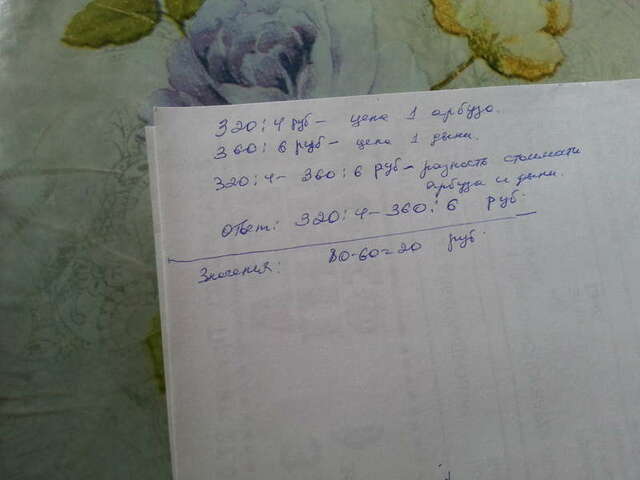 320:4 руб – цена 1 арбуза.
360:6 руб – цена 1 дыни.
320:4 – 360:6 руб – разность стоимати
арбуза и дыни.
ответ: 320:4 – 360:6 руб.
Значения: 80-60=20 руб.